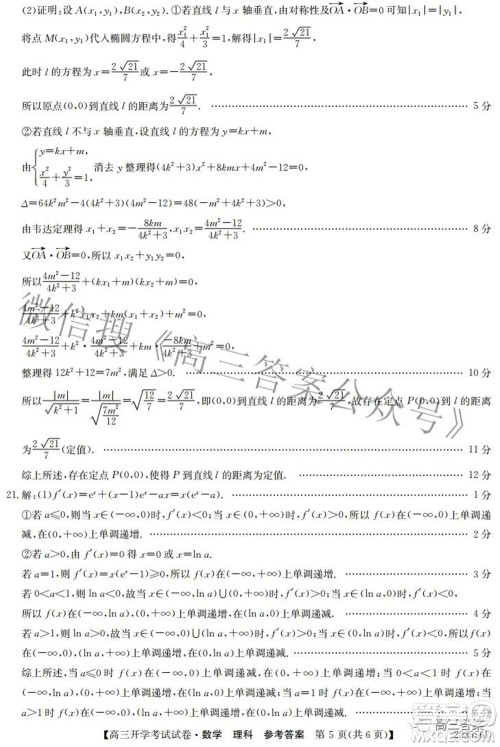 (2)证明:设 A(x₁,y₁),B(x₂,y₂).①若直线 l 与 x 轴垂直,由对称性及OA·OB=0 可知|x₁|=|y₁|,
将点 M(x₁,y₁)代入椭圆方程中,得x₁²/4+x₁²/3=1,解得|x₁|=2√21/7.
此时 l 的方程为 x=2√21/7或 x=-2√21/7.
所以原点(0,0)到直线 l 的距离为2√21/7. 5 分
②若直线 l 不与 x 轴垂直,设直线 l 的方程为 y=kx+m,
由{y=kx+m, x²/4+y²/3=1, 消去 y 整理得(4k²+3)x²+8kmx+4m²-12=0,
Δ=64k²m²-4(4k²+3)(4m²-12)=48(-m²+4k²+3)>0,
由韦达定理得 x₁+x₂=-8km/4k²+3,x₁x₂=4m²-12/4k²+3. 8 分
又OA·OB=0,所以 x₁x₂+y₁y₂=0,
所以4m²-12/4k²+3+(kx₁+m)(kx₂+m)=0,
4m²-12/4k²+3+k²x₁x₂+km(x₁+x₂)+m²=0,
整理得 12k²+12=7m²,满足 Δ>0. 10 分
所以|m|/√k²+1=|m|/√7m²/12=√12/7=2√21/7,即(0,0)到直线 l 的距离为2√21/7,故存在定点 P(0,0)到 l 的距离
为2√21/7(定值). 11 分
综上所述,存在定点 P(0,0),使得 P 到直线 l 的距离为定值. 12 分
21.解:(1)f′(x)=eˣ+(x-1)eˣ-ax=x(eˣ-a). 1 分
①若 a≤0,则当 x∈(-∞,0)时,f′(x)<0;当 x∈(0,+∞)时,f′(x)>0,所以 f(x)在(-∞,0)上单调递
减,在(0,+∞)上单调递增. 2 分
②若 a>0,由 f′(x)=0 得 x=0 或 x=ln a.
若 a=1,则 f′(x)=x(eˣ-1)≥0,所以 f(x)在(-∞,+∞)上单调递增. 3 分
若 0<a<1,则 ln a<0,故当 x∈(-∞,ln a)∪(0,+∞)时,f′(x)>0;当 x∈(ln a,0)时,f′(x)<0,
所以 f(x)在(-∞,ln a),(0,+∞)上单调递增,在(ln a,0)上单调递减. 4 分
若 a>1,则 ln a>0,故当 x∈(-∞,0)∪(ln a,+∞)时,f′(x)>0;当 x∈(0,ln a)时,f′(x)<0,所以 f(x)
在(-∞,0),(ln a,+∞)上单调递增,在(0,ln a)上单调递减. 5 分
综上所述,当 a≤0 时 f(x)在(-∞,0)上单调递减,在(0,+∞)上单调递增;当 0<a<1 时 f(x)在
(-∞,ln a),(0,+∞)上单调递增,在(ln a,0)上单调递减;当 a=1 时 f(x)在(-∞,+∞)上单调递增;当
a>1 时 f(x)在(-∞,0),(ln a,+∞)上单调递增,在(0,ln a)上单调递减.
【高三开学考试试卷·数学 理科 参考答案 第 5 页(共 6 页)】
微信搜《高三答案公众号》